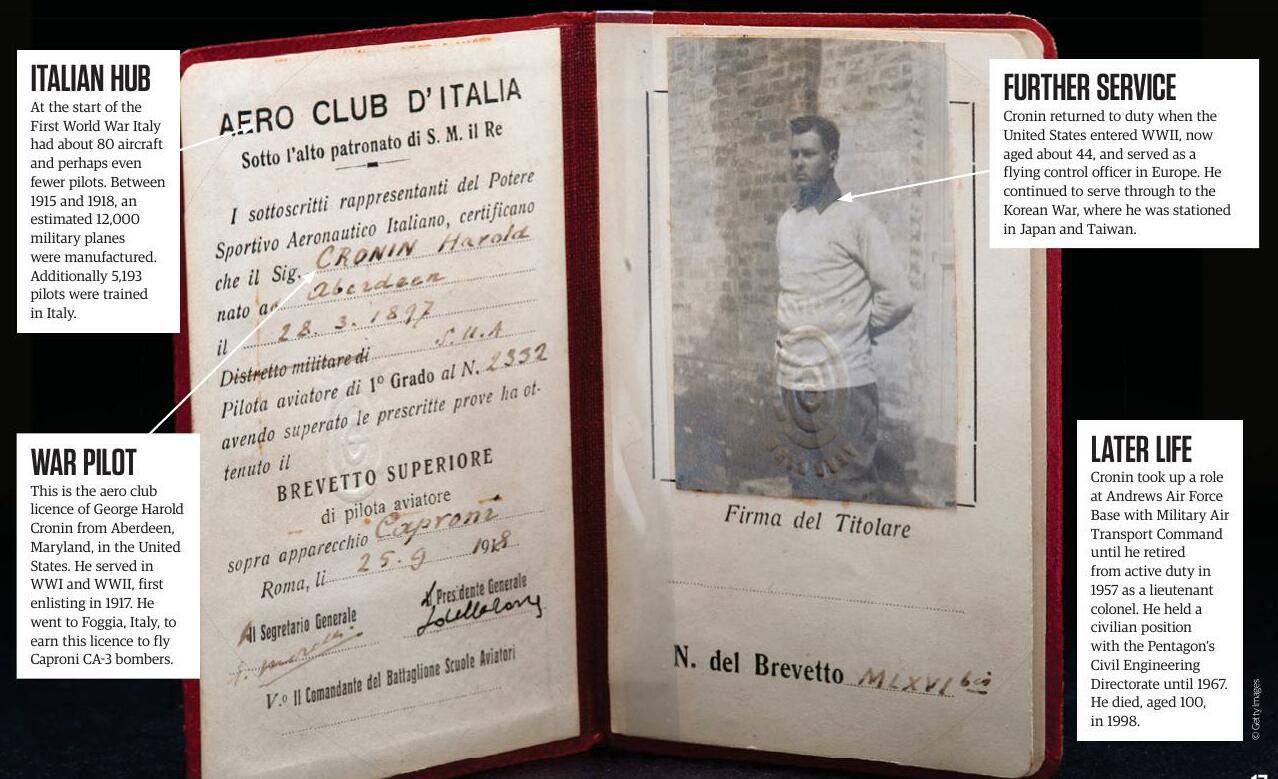 ITALIAN HUB
At the start of the
First World War Italy
had about 80 aircraft
and perhaps even
fewer pilots. Between
1915 and 1918, an
estimated 12,000
military planes
were manufactured.
Additionally 5,193
pilots were trained
in Italy.
WAR PILOT
This is the aero club
licence of George Harold
Cronin from Aberdeen,
Maryland, in the United
States. He served in
WWI and WWII, first
enlisting in 1917. He
went to Foggia, Italy, to
earn this licence to fly
Caproni CA-3 bombers.
AERO CLUB D'ITALIA
Sotto l'alto patronato di S. M. il Re
I sottoscritti rappresentanti del Potere
Sportivo Aeronautico Italiano, certificano
che il Sig. CRONIN Harold
nato a Aberdeen
il 28. 3. 1897
Distretto militare di S.U.A
Pilota aviatore di 1º Grado al N. 2332
avendo superato le prescritte prove ha ot-
tenuto il
BREVETTO SUPERIORE
di pilota aviatore
sopra apparecchio Caproni
Roma, li 25. 9 1918
Il Segretario Generale
Il Presidente Generale
V.º Il Comandante del Battaglione Scuole Aviatori
Firma del Titolare
N. del Brevetto MLXVI bis
FURTHER SERVICE
Cronin returned to duty when the
United States entered WWII, now
aged about 44, and served as a
flying control officer in Europe. He
continued to serve through to the
Korean War, where he was stationed
in Japan and Taiwan.
LATER LIFE
Cronin took up a role
at Andrews Air Force
Base with Military Air
Transport Command
until he retired
from active duty in
1957 as a lieutenant
colonel. He held a
civilian position
with the Pentagon's
Civil Engineering
Directorate until 1967.
He died, aged 100,
in 1998.
© Getty Images